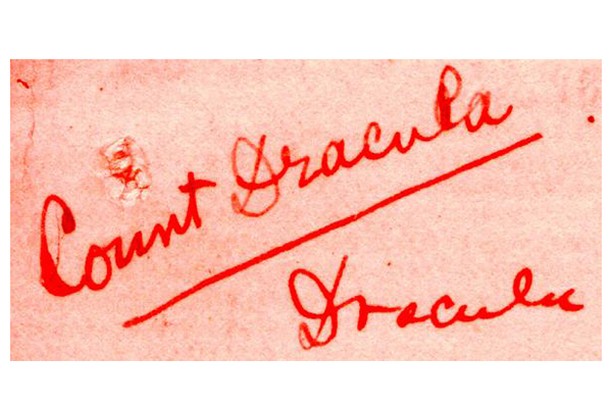 Count Dracula
Dracula